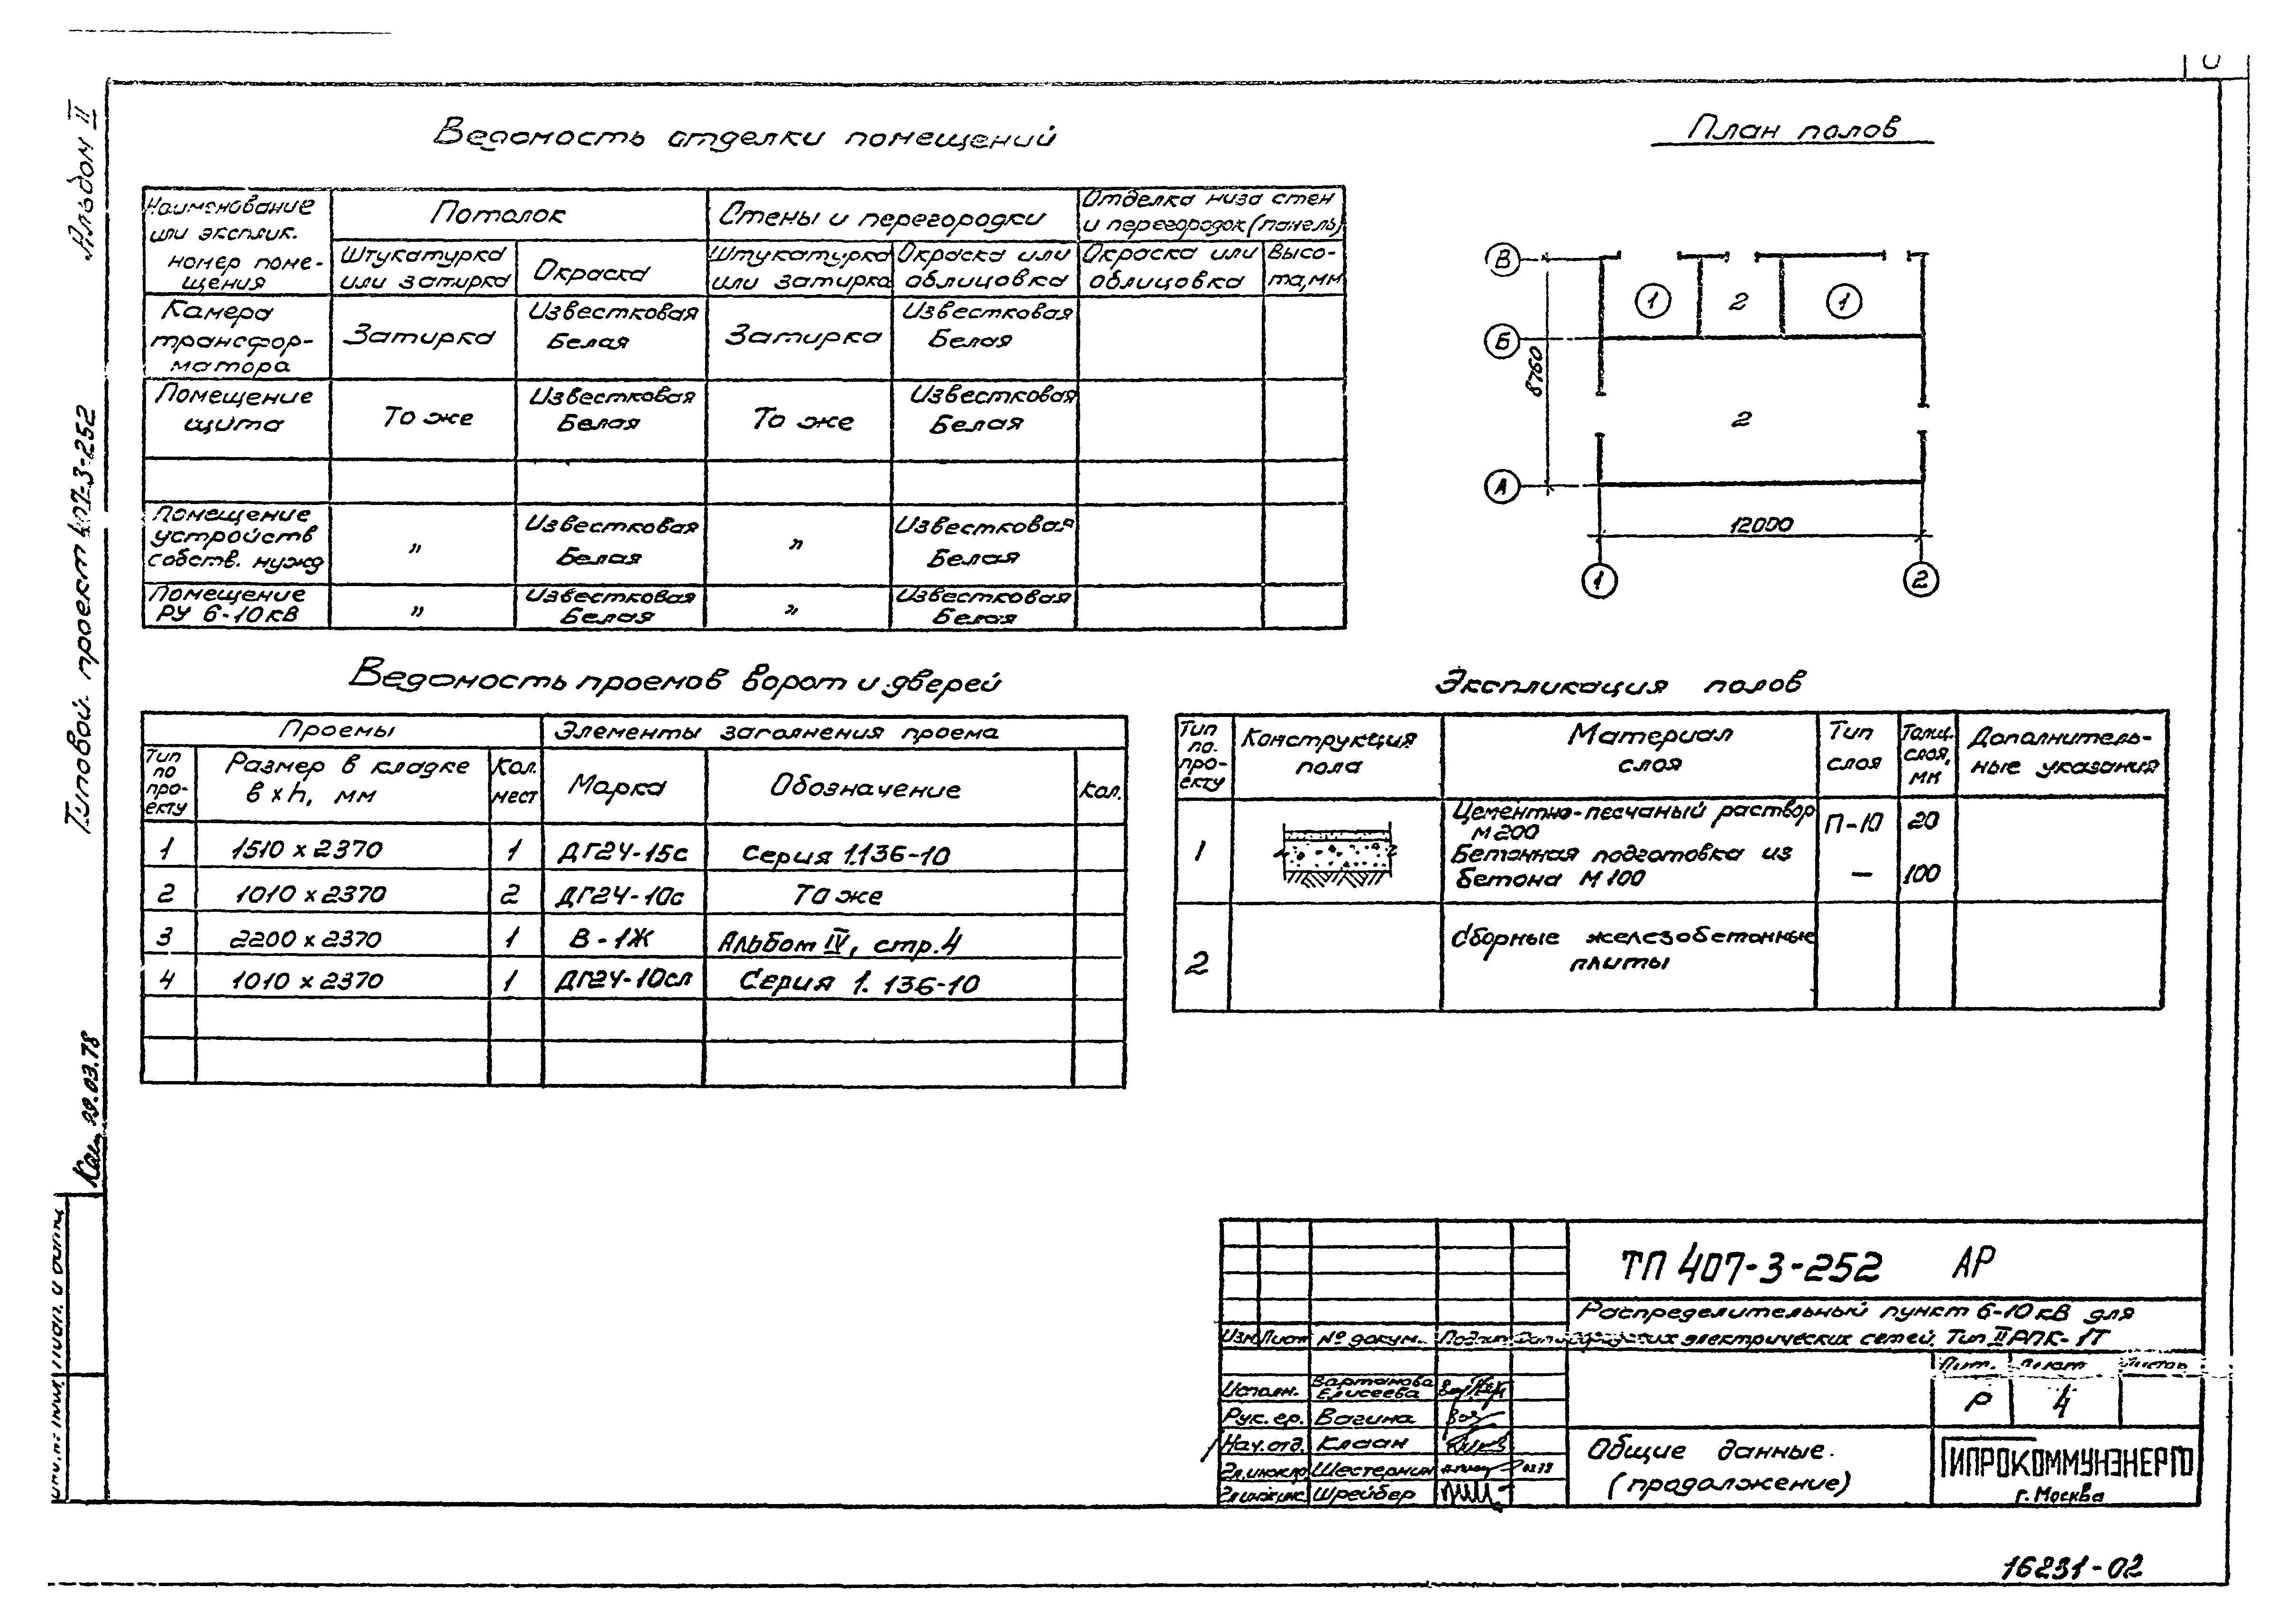 Альбом II
Типовой проект 407-3-252
09.03.78
Ведомость отделки помещений
Наименование
или эксплик.
номер поме-
щения
Потолок
Стены и перегородки
Отделка низа стен
и перегородок (панель)
Штукатурка
или затирка
Окраска
Штукатурка
или затирка
Окраска или
облицовка
Окраска или
облицовка
Высо-
та, мм
Камера
трансфор-
матора
Затирка
Известковая
Белая
Затирка
Известковая
Белая
Помещение
щита
То же
Известковая
Белая
То же
Известковая
Белая
Помещение
устройств
собств. нужд
"
Известковая
Белая
"
Известковая
Белая
Помещение
РУ 6-10кВ
"
Известковая
Белая
"
Известковая
Белая
План полов
В
Б
А
1
2
1
2
8760
12000
1
2
Ведомость проемов ворот и дверей
Проемы
Элементы заполнения проема
Тип
по
про-
екту
Размер в кладке
в x h, мм
Кол.
мест
Марка
Обозначение
Кол.
1 1510 x 2370 1 ДГ24-15с Серия 1.136-10
2 1010 x 2370 2 ДГ24-10с То же
3 2200 x 2370 1 В-1Ж Альбом IV, стр.4
4 1010 x 2370 1 ДГ24-10сл Серия 1.136-10
Экспликация полов
Тип
по.
про-
екту
Конструкция
пола
Материал
слоя
Тип
слоя
Толщ.
слоя,
мм
Дополнитель-
ные указания
1
Цементно-песчаный раствор
М200
П-10 20
Бетонная подготовка из
бетона М100
— 100
2
Сборные железобетонные
плиты
ТП 407-3-252 АР
Распределительный пункт 6-10кВ для
городских электрических сетей. Тип II РПК-1Т
Изм Лист № докум. Подп.
Лит. Лист Листов
Р 4
Исполн. Вартанова
Елисеева
Рук. гр. Вагина
Нач. отд. Клаан
Гл.инж.пр. Шестернин
Гл.инж.ин. Шрейбер
Общие данные.
(продолжение)
ГИПРОКОММУНЭНЕРГО
г. Москва
16231-02